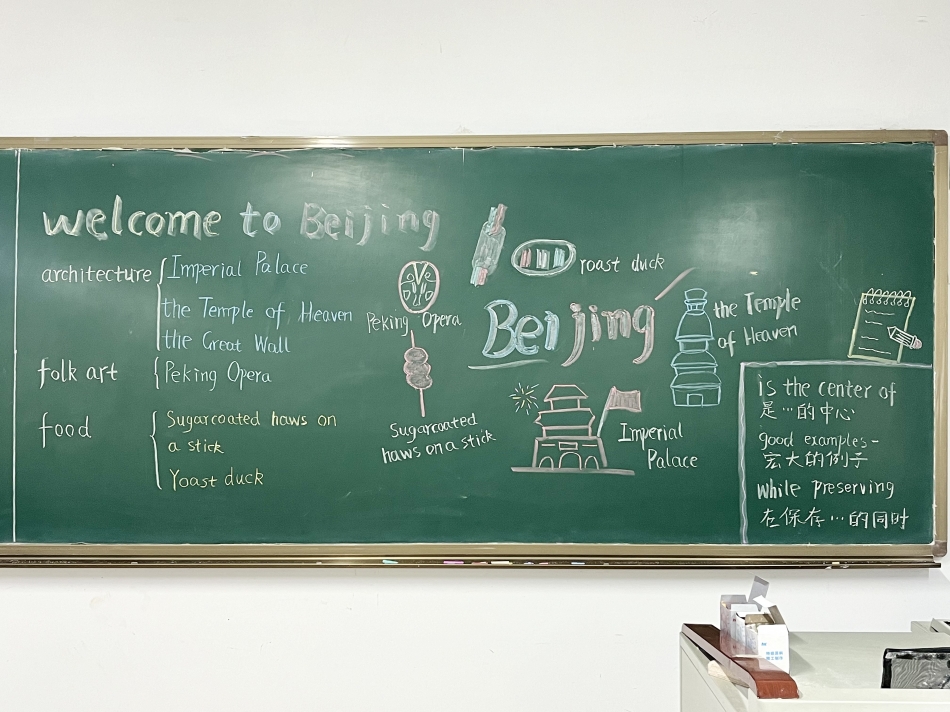 welcome to Beijing
architecture
Imperial Palace
the Temple of Heaven
the Great Wall
folk art
Peking Opera
food
Sugarcoated haws on
a stick
Yoast duck
roast duck
Peking Opera
Beijing
the Temple
of Heaven
Sugarcoated
haws on a stick
Imperial
Palace
is the center of
是…的中心
good examples-
宏大的例子
while preserving
在保存…的同时